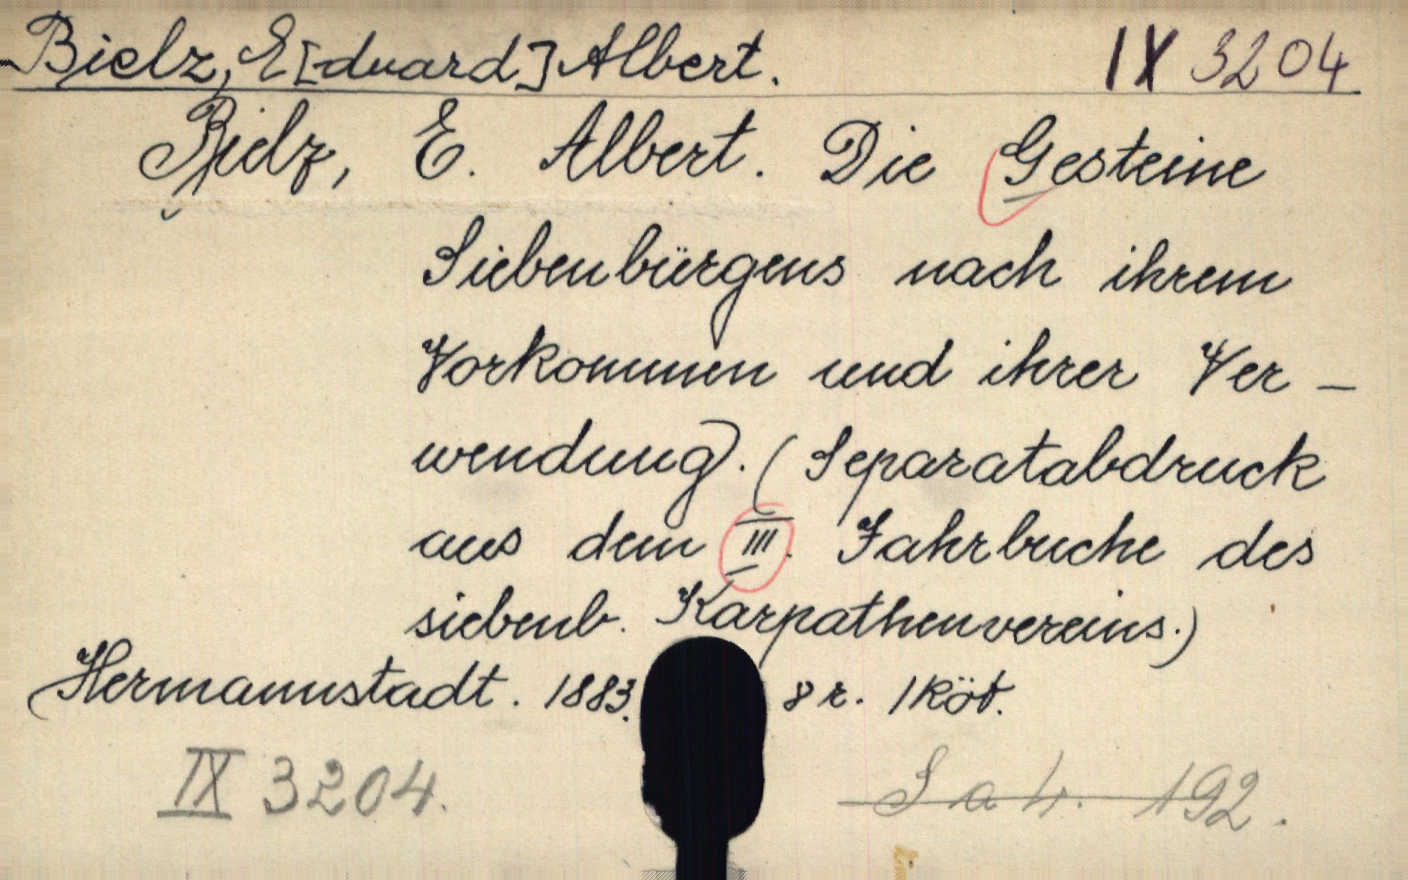 Bielz, E[duard] Albert. IX 3204
Bielz, E. Albert. Die Gesteine
Siebenbürgens nach ihrem
Vorkommen und ihrer Ver-
wendung. (Separatabdruck
aus dem III. Jahrbuche des
siebenb. Karpathenvereins.)
Hermannstadt. 1883. 8r. 1 köt.
IX 3204. S a 4. 192.